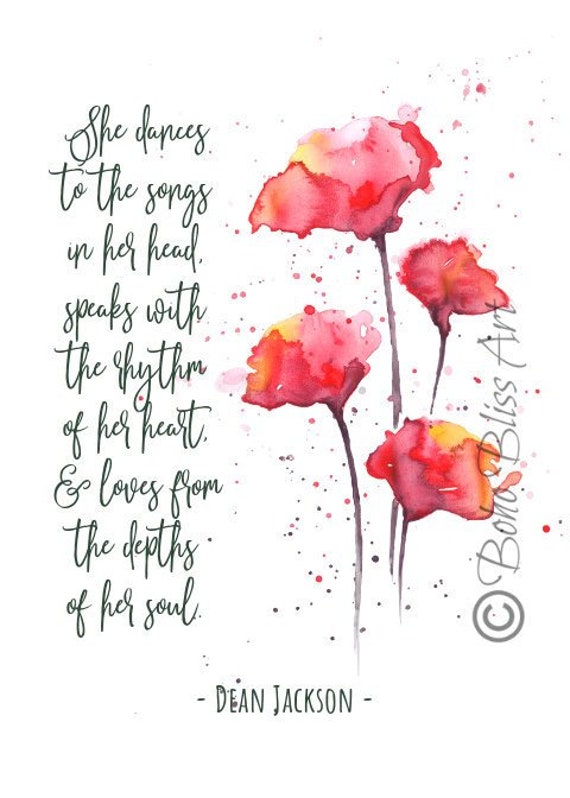 She dances
to the songs
in her head,
speaks with
the rhythm
of her heart,
& loves from
the depths
of her soul.
- Dean Jackson -
© Boho Bliss Art